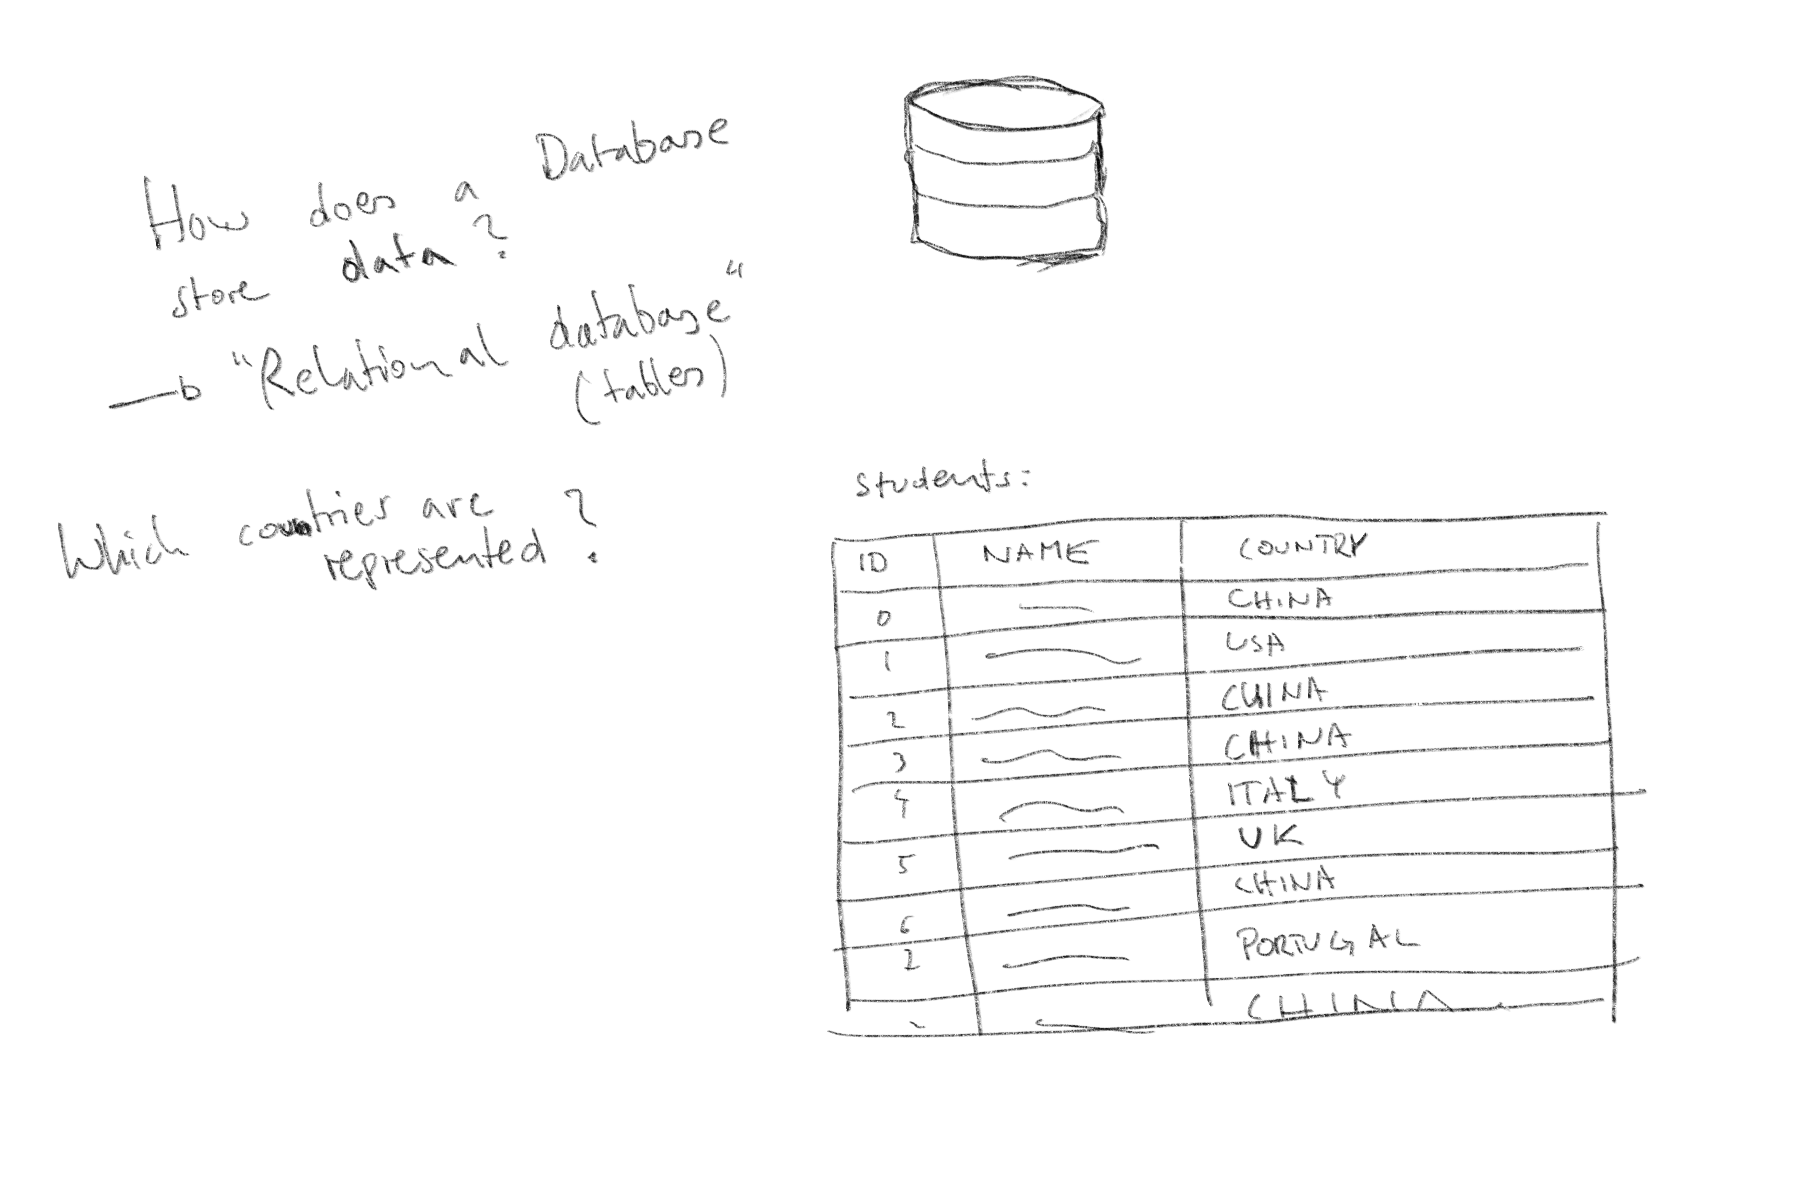 How does a Database
store data?
"Relational database"
(tables)
Which countries are
represented?
Students:
ID NAME COUNTRY
0 CHINA
1 USA
2 CHINA
3 CHINA
4 ITALY
5 UK
6 CHINA
PORTUGAL
CHINA